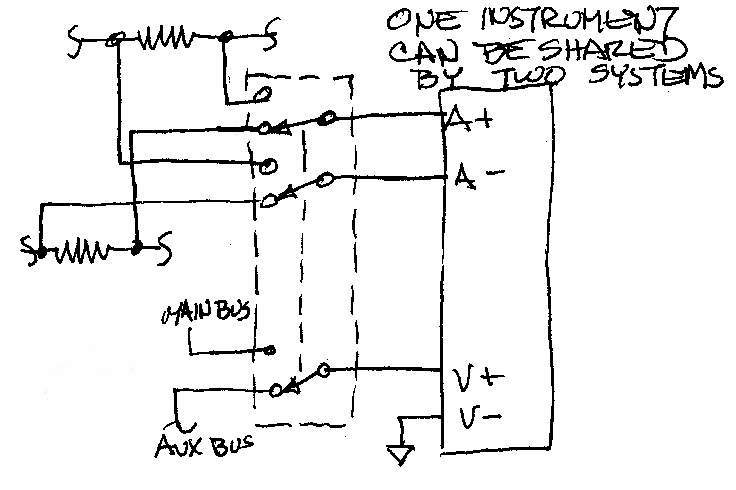 ONE INSTRUMENT
CAN BE SHARED
BY TWO SYSTEMS
A+
A-
MAIN BUS
V+
V-
AUX BUS